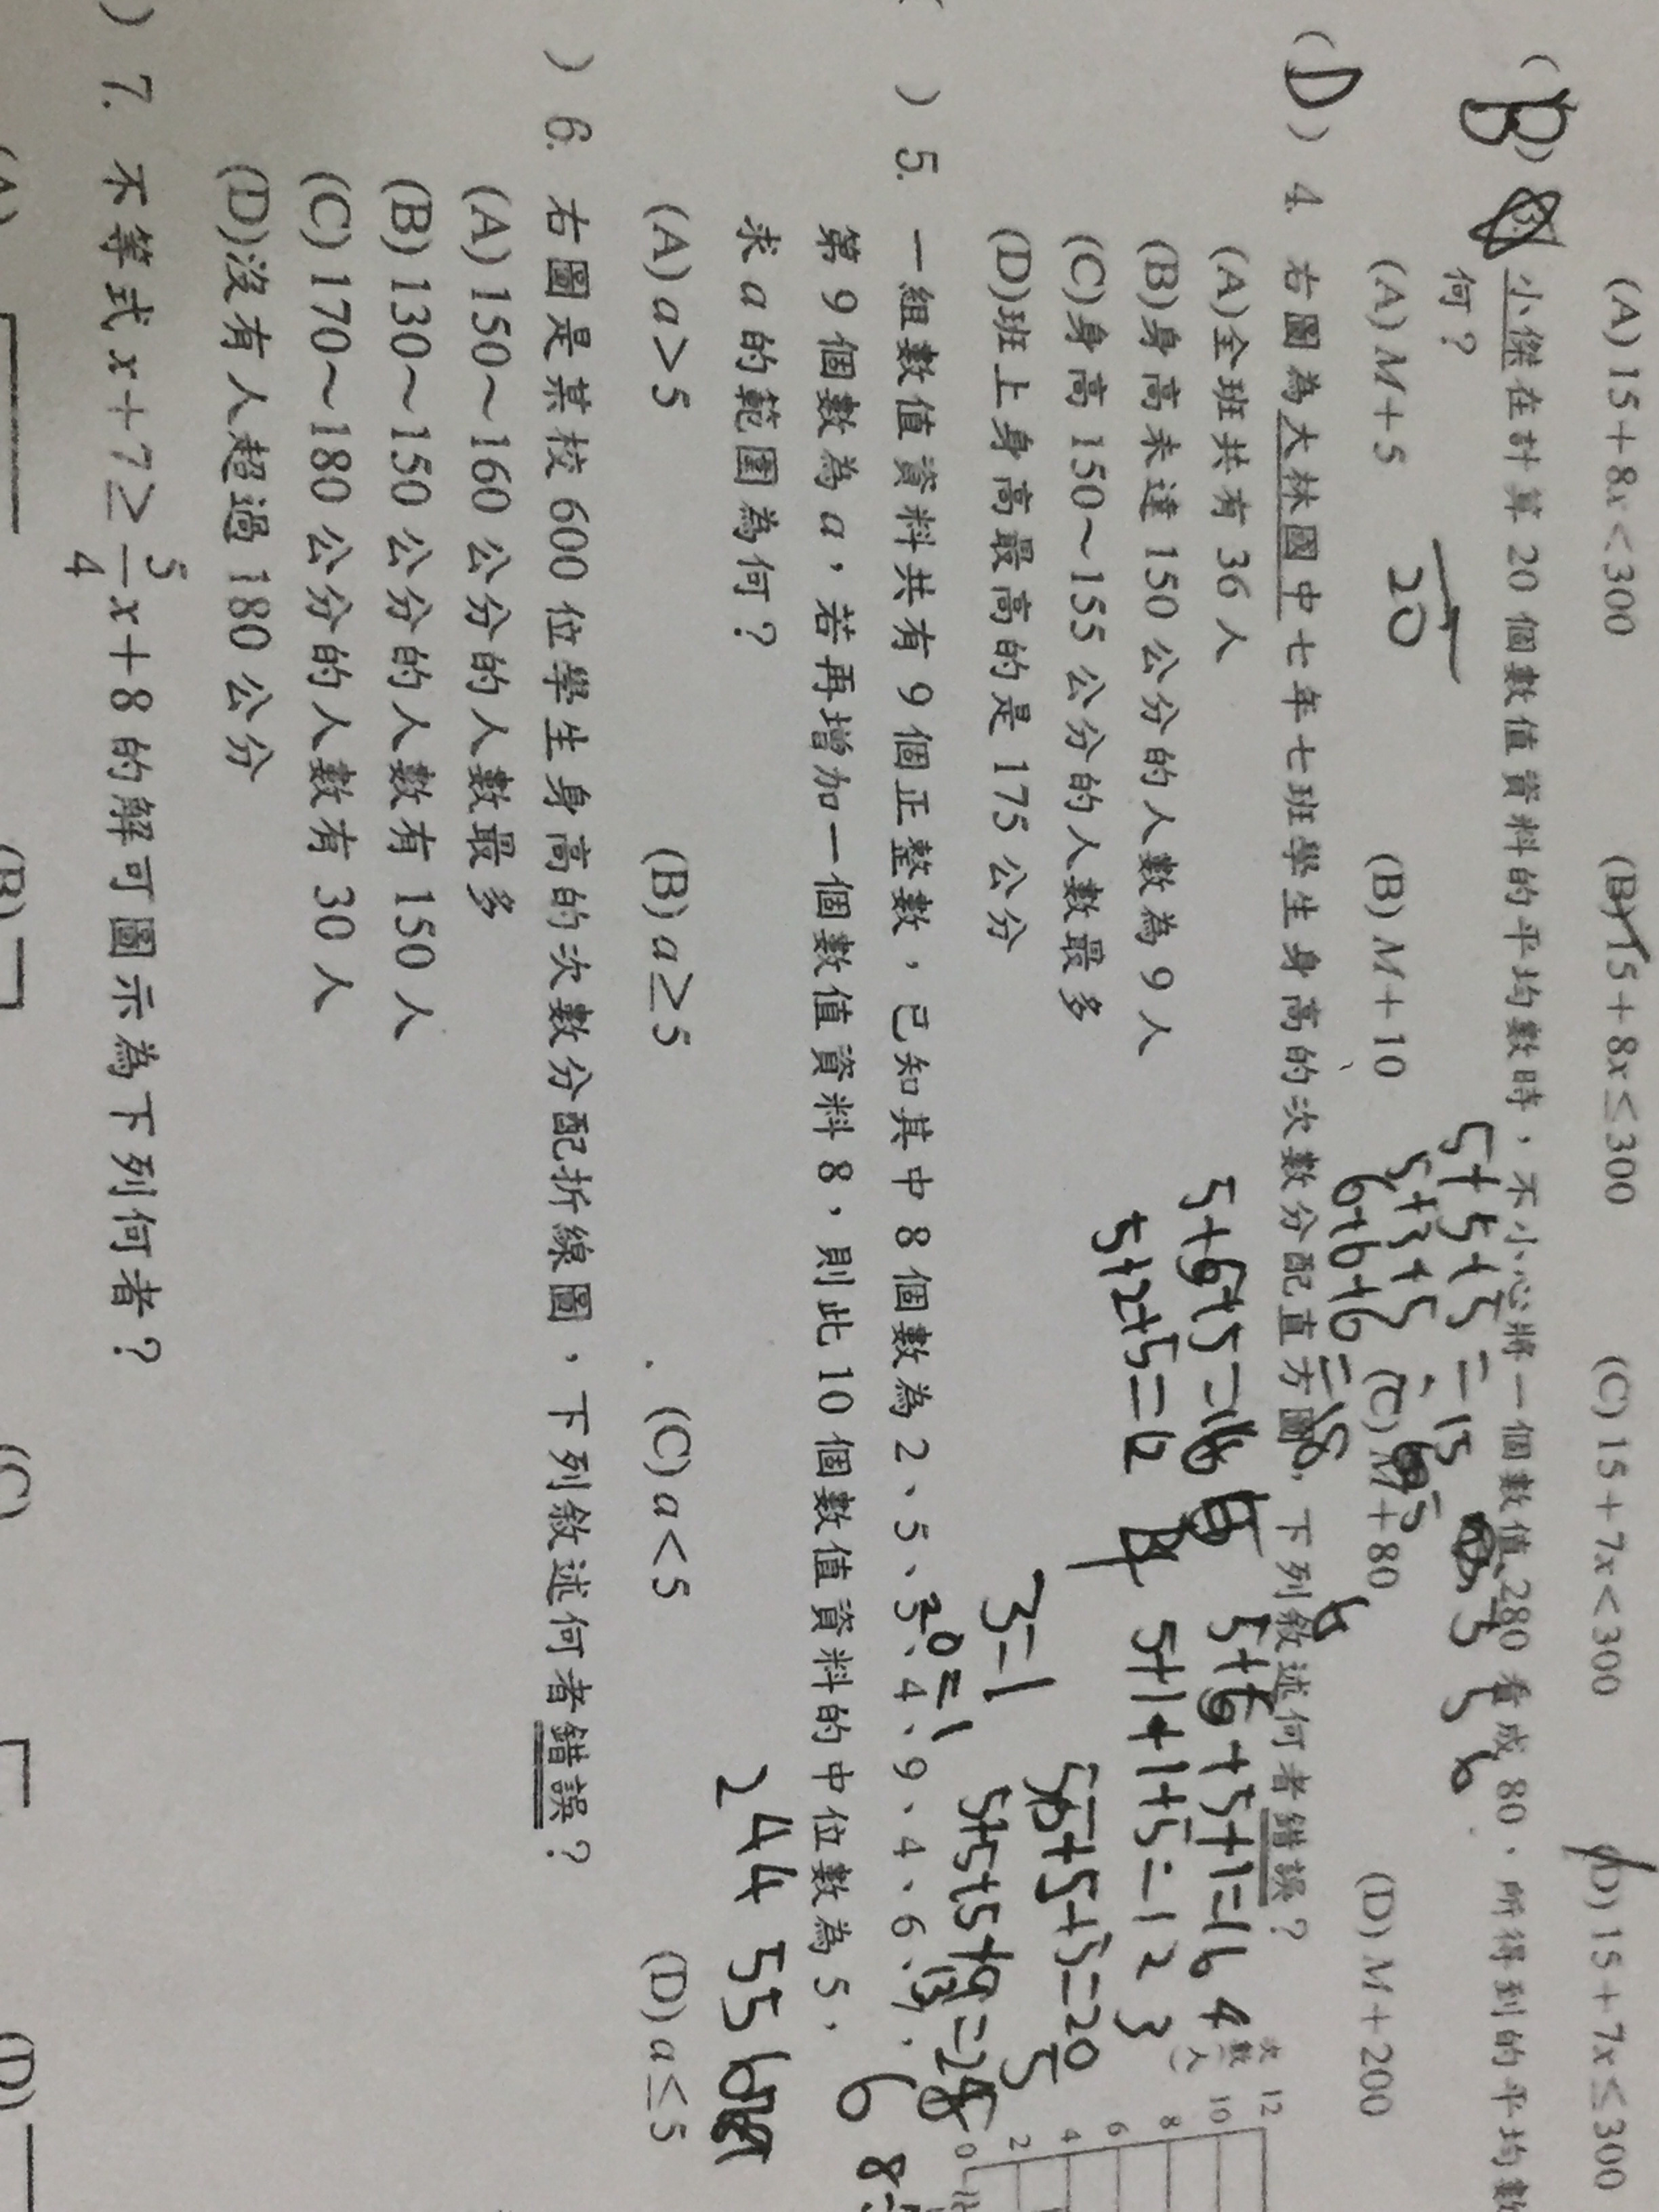 (A) 15+8x<300 (B) 15+8x≤300 (C) 15+7x<300 (D) 15+7x≤300
小傑在計算 20 個數值資料的平均數時，不小心將一個數值 280 看成 80，所得到的平均數
何？
(A) M+5 (B) M+10 (C) M+80 (D) M+200
20
5+5+5=15
5+3+5
6+6+6=18
(D) 4. 右圖為大林國中七年七班學生身高的次數分配直方圖，下列敘述何者錯誤？
(A)全班共有 36 人
(B)身高未達 150 公分的人數為 9 人
(C)身高 150～155 公分的人數最多
(D)班上身高最高的是 175 公分
5+6+5=16
5+2+5=12
5+6+5+1=16 4
5+1+1+5=12 3
3=1
次數(人)
12
10
8
6
4
2
0
) 5. 一組數值資料共有 9 個正整數，已知其中 8 個數為 2、5、3、4、9、4、6、
第 9 個數為 a，若再增加一個數值資料 8，則此 10 個數值資料的中位數為 5，
求 a 的範圍為何？
2 4 4 5 5 6
(A) a>5 (B) a≥5 (C) a<5 (D) a≤5
) 6. 右圖是某校 600 位學生身高的次數分配折線圖，下列敘述何者錯誤？
(A) 150～160 公分的人數最多
(B) 130～150 公分的人數有 150 人
(C) 170～180 公分的人數有 30 人
(D)沒有人超過 180 公分
) 7. 不等式 x+7≥5/4x+8 的解可圖示為下列何者？
(A) (B) (C) (D)